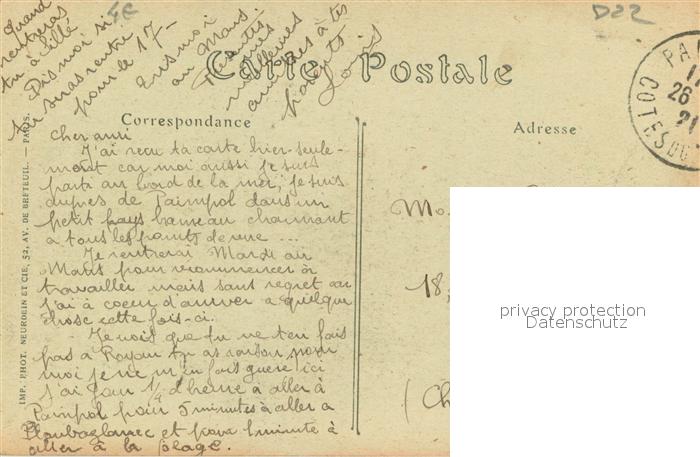 4E
D22
Quand
rentreras
tu à Sillé
Dis moi si
tu seras rentré
pour le 17-
Ecris moi
au Mans
mes meilleures
amitiés à tes
parents
Louis
Carte Postale
PAI
11
26
21
COTES DU
Correspondance
Adresse
cher ami
J'ai reçu ta carte hier seule-
ment car moi aussi je suis
parti au bord de la mer, je suis
auprès de Paimpol dans un
petit pays hameau charmant
à tous les points de vue ...
Je rentrerai Mardi au
Mans pour recommencer à
travailler mais sans regret car
j'ai à coeur d'arriver à quelque
chose cette fois-ci.
- Je vois que tu ne t'en fais
pas à Royan tu as raison, pour
moi je ne m'en fais guère ici
j'ai pour 1/4 d'heure à aller à
Paimpol pour 5 minutes à aller à
Ploubazlanec et pour 1 minute à
aller à la plage.
IMP. PHOT. NEURDEIN ET CIE, 52, AV. DE BRETEUIL. — PARIS.
Mo
18,
(Ch
privacy protection
Datenschutz